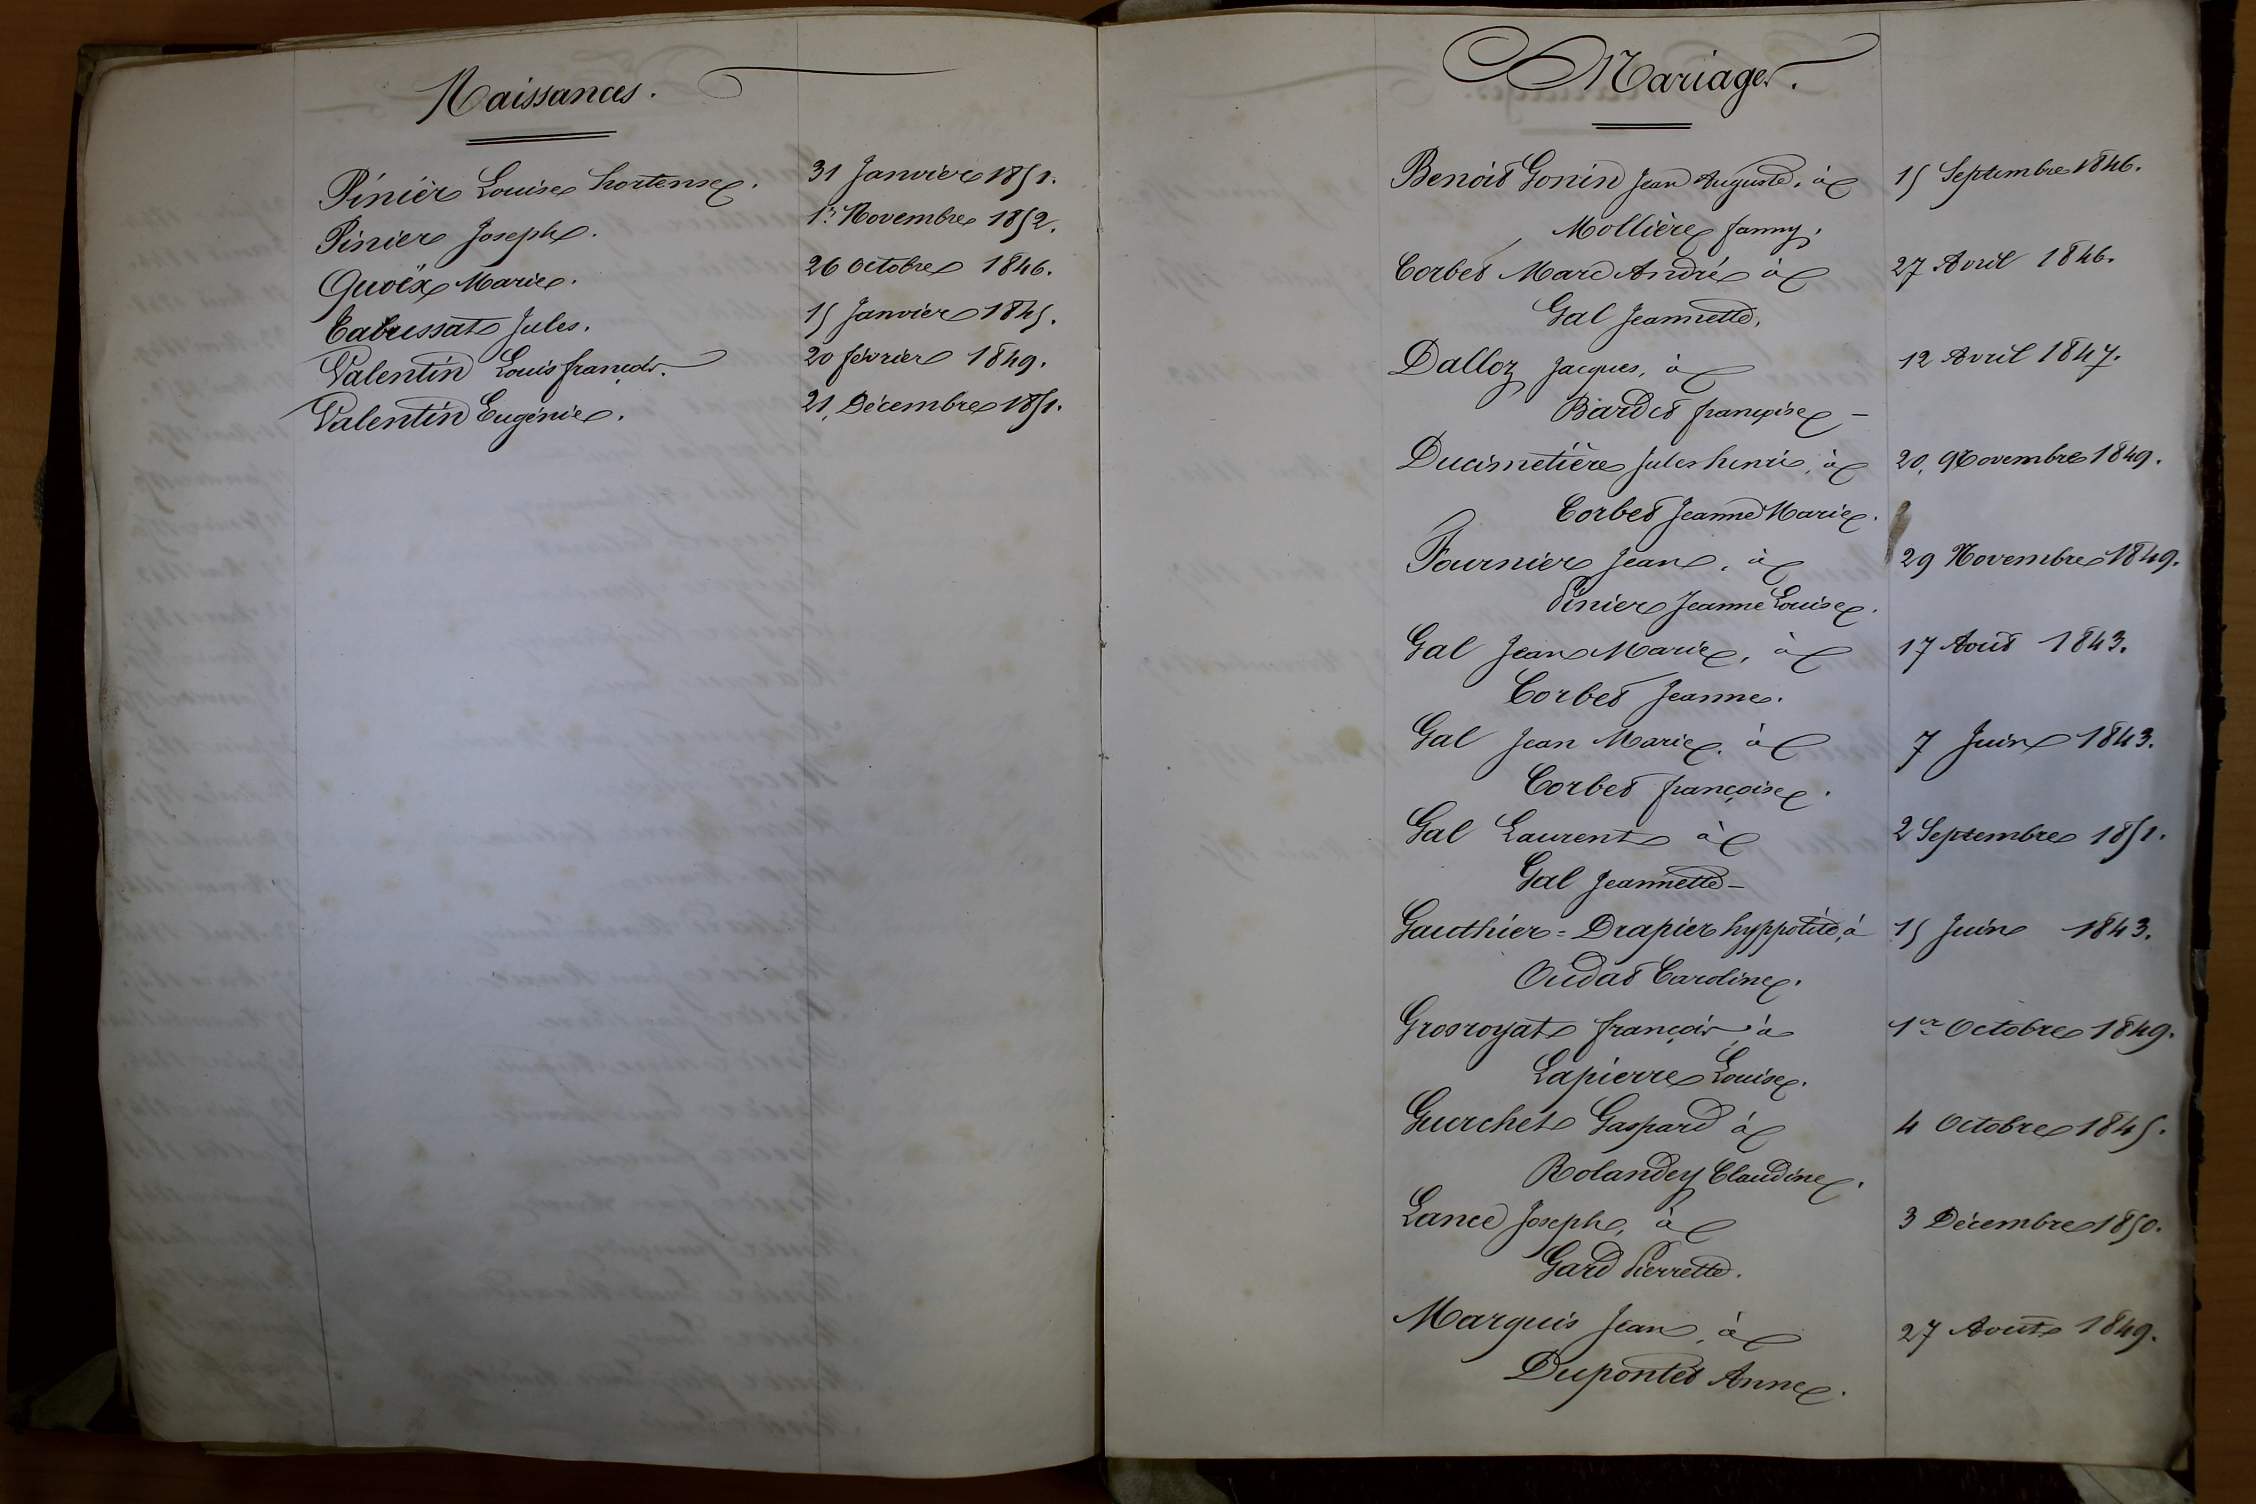 Naissances.
Pinier Louise hortense. 31 Janvier 1851.
Pinier Joseph. 1er Novembre 1852.
Quoëx Marie. 26 Octobre 1846.
Tabussat Jules. 15 Janvier 1845.
Valentin Louis françois. 20 février 1849.
Valentin Eugénie. 21, Décembre 1851.
Mariages.
Benoit Gonin Jean Auguste, à 15 Septembre 1846.
Mollière fanny,
Corbet Marc André à 27 Avril 1846.
Gal Jeannette,
Dalloz Jacques, à 12 Avril 1847.
Bardet françoise –
Ducimetière Jules henri, à 20, Novembre 1849.
Corbet Jeanne Marie.
Fournier Jean, à 29 Novembre 1849.
Pinier Jeanne Louise.
Gal Jean Marie, à 17 Aout 1843.
Corbet Jeanne.
Gal Jean Marie, à 7 Juin 1843.
Corbet françoise.
Gal Laurent à 2 Septembre 1851.
Gal Jeannette –
Gauthier = Drapier hyppolite, à 15 Juin 1843.
Oudat Caroline.
Grosroyat françois, à 1er Octobre 1849.
Lapierre Louise.
Guerchet Gaspard à 4 Octobre 1845.
Rolandey Claudine.
Lance Joseph, à 3 Décembre 1850.
Gard Pierrette.
Marquis Jean, à 27 Aout 1849.
Dupontet Anne.